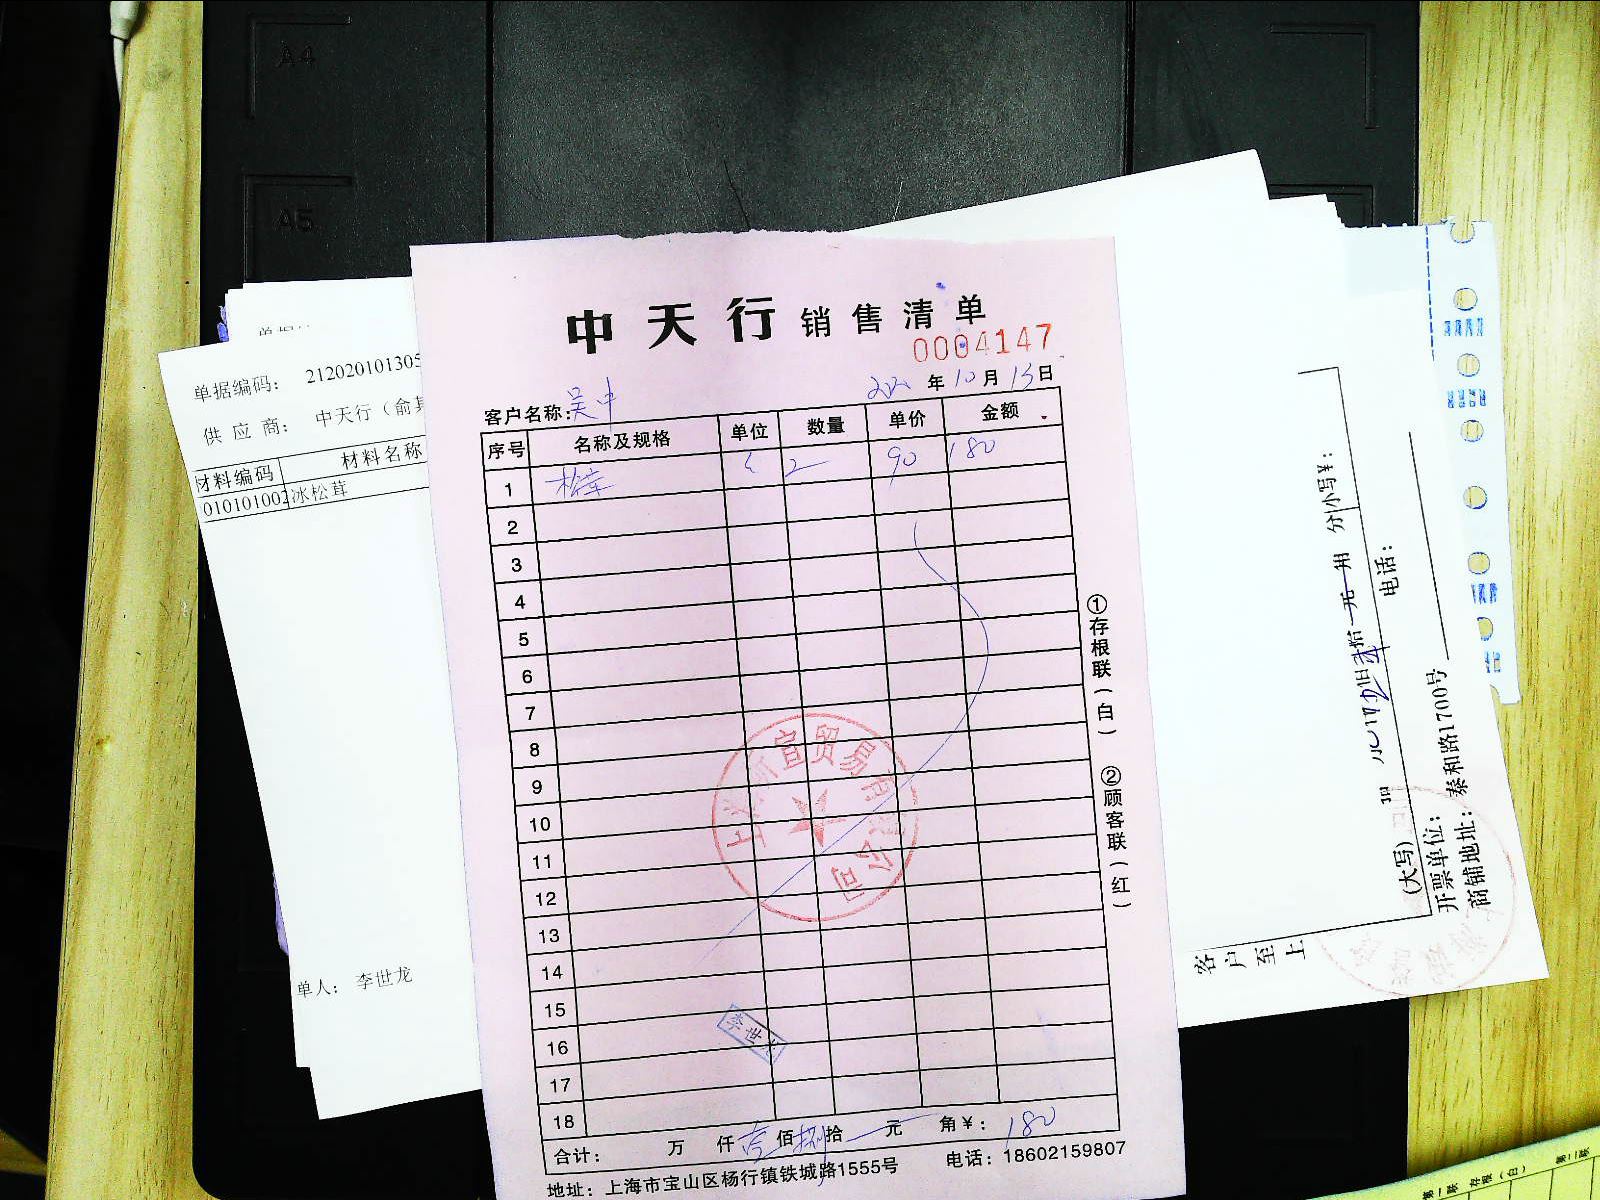 A4
A5
单据编码： 212020101305
供 应 商： 中天行（俞其
材料编码 材料名称
010101002 冰松茸
单人： 李世龙
中天行 销售清单
0004147
年 10 月 13 日
客户名称：吴中
序号 名称及规格 单位 数量 单价 金额
1 松茸 2 90 180
2
3
4
5
6
7
8
9
10
11
12
13
14
15
16
17
18
合计： 万 仟 壹 佰 捌 拾 元 角 ¥： 180
地址：上海市宝山区杨行镇铁城路1555号 电话：18602159807
①存根联（白） ②顾客联（红）
宣贸易有限公司
李世龙
分 小写¥：
(大写)
电话：
开票单位：
商铺地址：泰和路1700号
客户至上